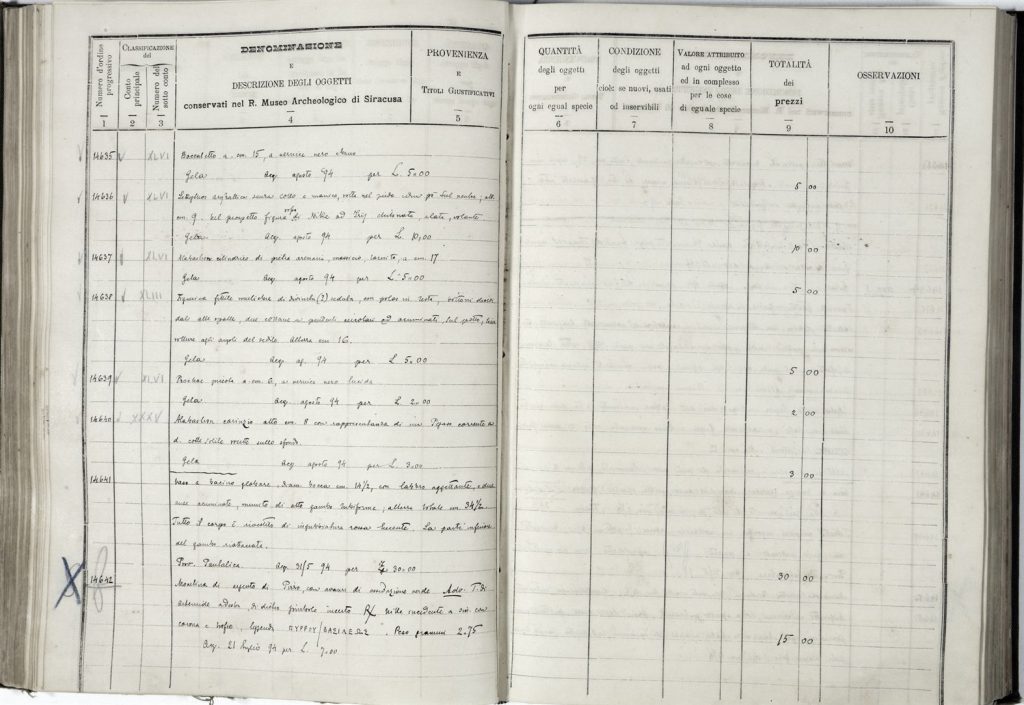 Numero d'ordine progressivo
1
CLASSIFICAZIONE
del
Conto principale
2
Numero del sotto conto
3
DENOMINAZIONE
E
DESCRIZIONE DEGLI OGGETTI
conservati nel R. Museo Archeologico di Siracusa
4
PROVENIENZA
E
TITOLI GIUSTIFICATIVI
5
QUANTITÀ
degli oggetti
per
ogni egual specie
6
CONDIZIONE
degli oggetti
cioè: se nuovi, usati
od inservibili
7
VALORE ATTRIBUITO
ad ogni oggetto
ed in complesso
per le cose
di eguale specie
8
TOTALITÀ
dei
prezzi
9
OSSERVAZIONI
10
14635 XLVI Boccaletto a cm. 15, a vernice nero
Gela Acq. agosto 94 per L. 5.00
5 00
14636 XLVI Lekythos senza collo e manico, rotto nel
cm 9. Nel prospetto figura di Nike ad alata, volante
Gela Acq. agosto 94 per L. 10,00
10 00
14637 XLVI Alabastron cilindrico di pietra a cm. 17
Gela Acq. agosto 94 per L. 5.00
5 00
14638 XLIII Figurina fittile muliebre di divinità (?) seduta, con polos in testa, bottoni
alle spalle, due collane a pendenti ed acuminati, sul petto,
rotture agli angoli del sedile. Altezza cm 16.
Gela Acq. ag. 94 per L 5.00
5 00
14639 XLVI Prochoe piccola a cm. 6, a vernice nero lucida
Gela Acq. agosto 94 per L 2.00
2 00
14640 XXXV Alabastron corinzio alto cm. 8 con rappresentanza di un Pegaso corrente a
d. colle solite rosette sullo sfondo.
Gela Acq. agosto 94 per L. 3.00
3 00
14641 Vaso a bacino globare, diam. bocca cm. 14½, con labbro aggettante, e
acuminate, munito di alto gambo tubiforme; altezza totale cm. 34½
Tutto il corpo è rivestito di ingubbiatura rossa lucente. La parte inferiore
del gambo riattaccata.
Prov. Pantalica Acq. 31/5 94 per L. 30.00
30 00
14642 Monetina di argento di Pirro, con avanzi di ossidazione verde. Adv. T. di
Artemide a destra, di dietro simbolo incerto Rx Nike incedente a sin. con
corona e trofeo, leggenda ΠΥΡΡΟΥ/ΒΑΣΙΛΕΩΣ. Peso grammi 2.75
Acq. 21 luglio 94 per L. 7.00
15 00